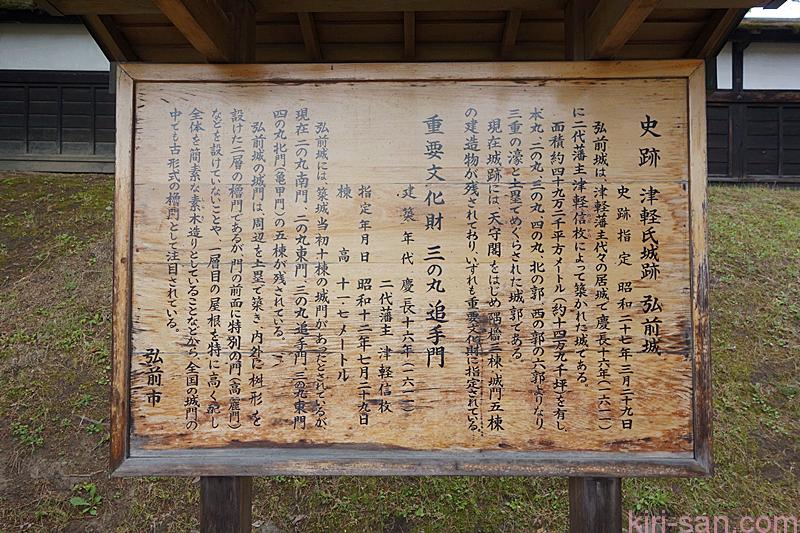 史跡 津軽氏城跡 弘前城
史跡指定 昭和二十七年三月二十九日
弘前城は、津軽藩主代々の居城で慶長十六年(一六一一)
に二代藩主津軽信枚によって築かれた城である。
面積約四十九万二千平方メートル(約十四万九千坪)を有し
本丸、二の丸、三の丸、四の丸、北の郭、西の郭の六郭よりなり
三重の濠と土塁でめぐらされた城郭である。
現在城跡には、天守閣をはじめ隅櫓三棟、城門五棟
の建造物が残されており、いずれも重要文化財に指定されている。
重要文化財 三の丸 追手門
建築年代 慶長十六年(一六一一)
二代藩主 津軽信枚
指定年月日 昭和十二年七月二十九日
棟高 十一・七メートル
弘前城には、築城当初十棟の城門があったとされているが
現在二の丸南門、二の丸東門、三の丸追手門、三の丸東門
四の丸北門(亀甲門)の五棟が残されている。
弘前城の城門は周辺を土塁で築き、内外に桝形を
設けた二層の櫓門であるが、門の前面に特別の門(高麗門)
などを設けていないことや、一層目の屋根を特に高く配し
全体を簡素な素木造りとしていることなどから、全国の城門の
中でも古形式の櫓門として注目されている。
弘前市
kiri-san.com